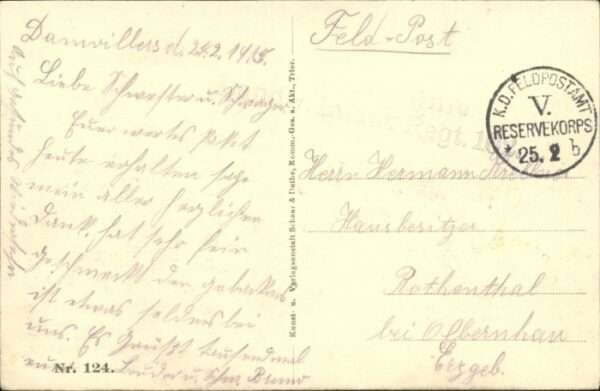 Damvillers d. 25.2.1915.
Liebe Schwester u. Schwager
Euer wertes Paket
heute erhalten sage
mein aller herzlichen
Dank, hat sehr fein
geschmeckt der
ist etwas seldens bei
uns. Es Grüßt tausendmal
Bruder u. Schw. Bruno
Auf Wiedersehen
Nr. 124.
Kunst- u. Verlagsanstalt Schaar & Dathe, Komm.-Ges. a. Akt., Trier.
Feld-Post
K.D. FELDPOSTAMT
V.
RESERVEKORPS
* 25. 2 b
Herrn Hermann
Hausbesitzer
Rothenthal
bei Olbernhau
Erzgeb.